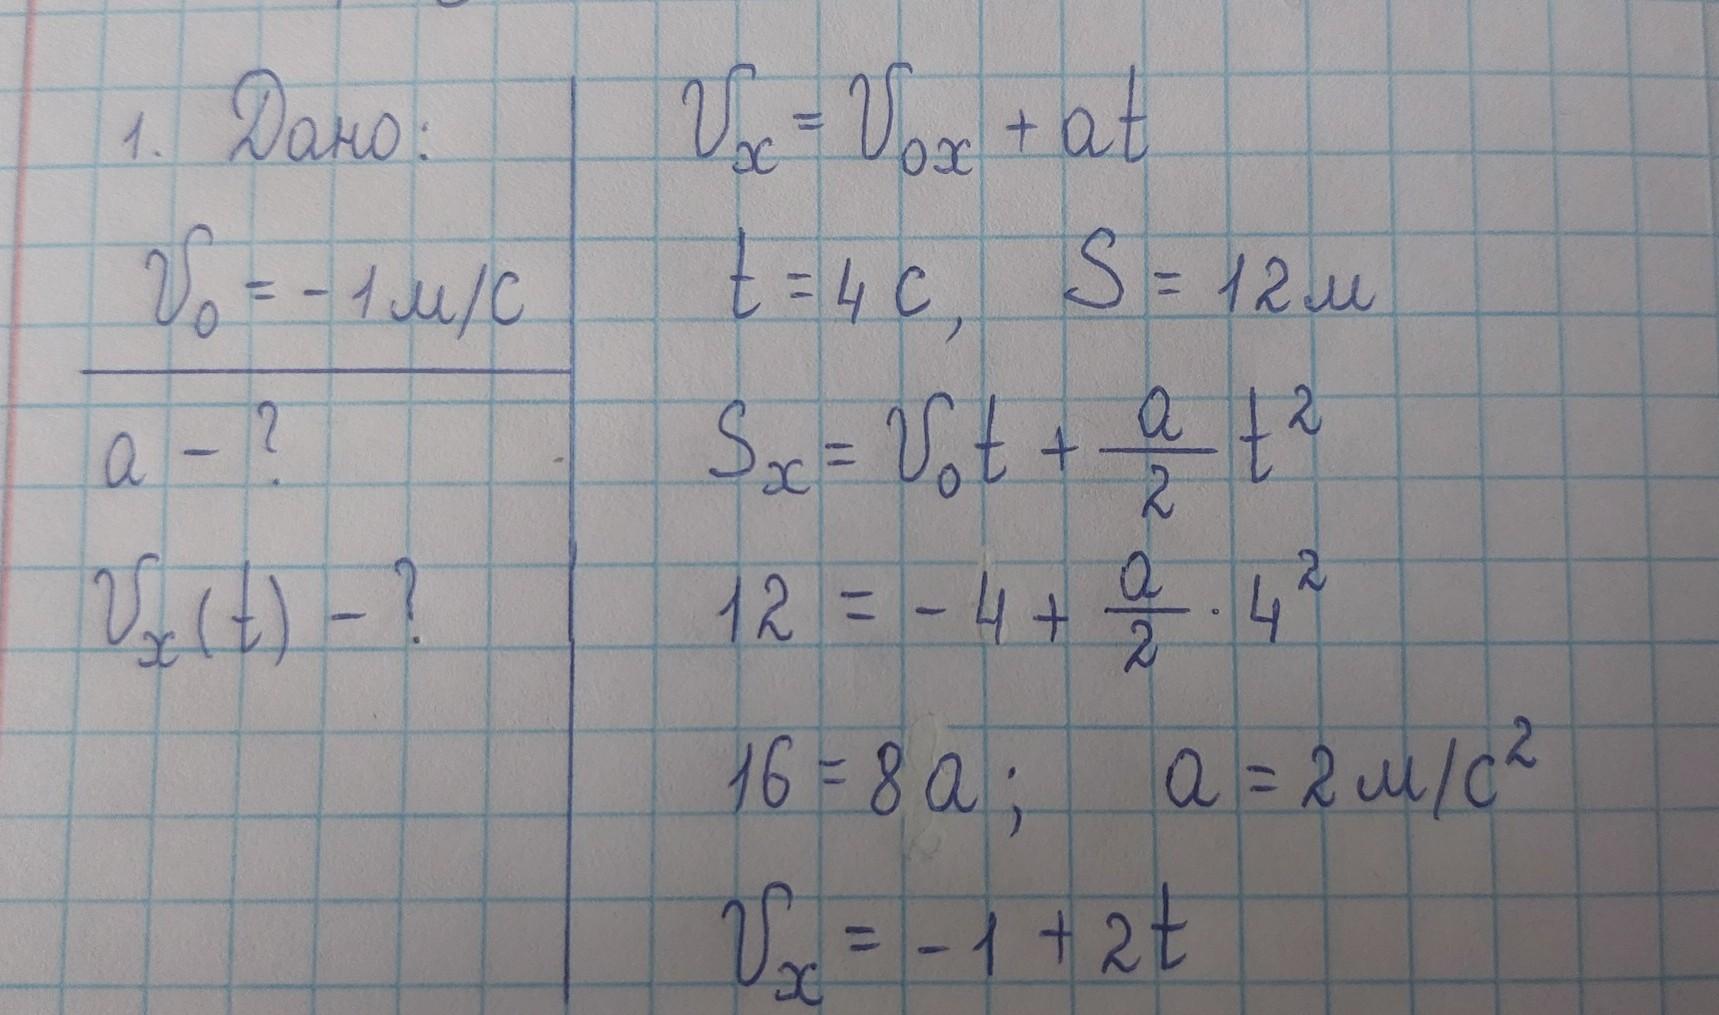 1. Дано:
V₀ = -1 м/с
a - ?
Vₓ(t) - ?
Vₓ = V₀ₓ + at
t = 4 c, S = 12 м
Sₓ = V₀t + a/2 t²
12 = -4 + a/2 · 4²
16 = 8a; a = 2 м/с²
Vₓ = -1 + 2t